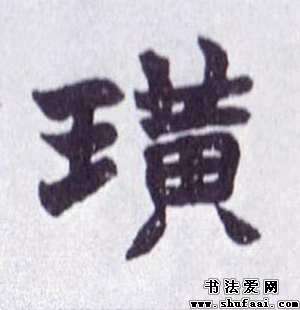 璜
书法爱网
www.shufaai.com